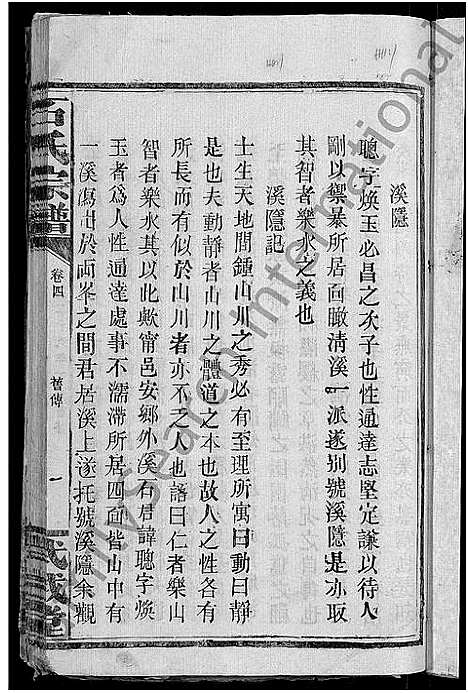 溪隱
聰字煥玉必昌之次子也性通達志堅定謙以待人
剛以禦暴所居面瞰清溪一派遂别號溪隱是亦取
其智者樂水之義也
溪隱記
士生天地間鍾山川之秀必有至理所寓曰動曰靜
是也夫動靜者山川之體道之本也故人之性各有
所長而有似於山川者亦不乏人也語曰仁者樂山
智者樂水其以此歟甯邑安鄉外溪石君諱聰字煥
玉者爲人性通達處事不濡滯所居四面皆山中有
一溪瀉出於兩峯之間君居溪上遂托號溪隱余觀
石氏宗譜
卷四
舊傳
一
武威堂
mysearch International